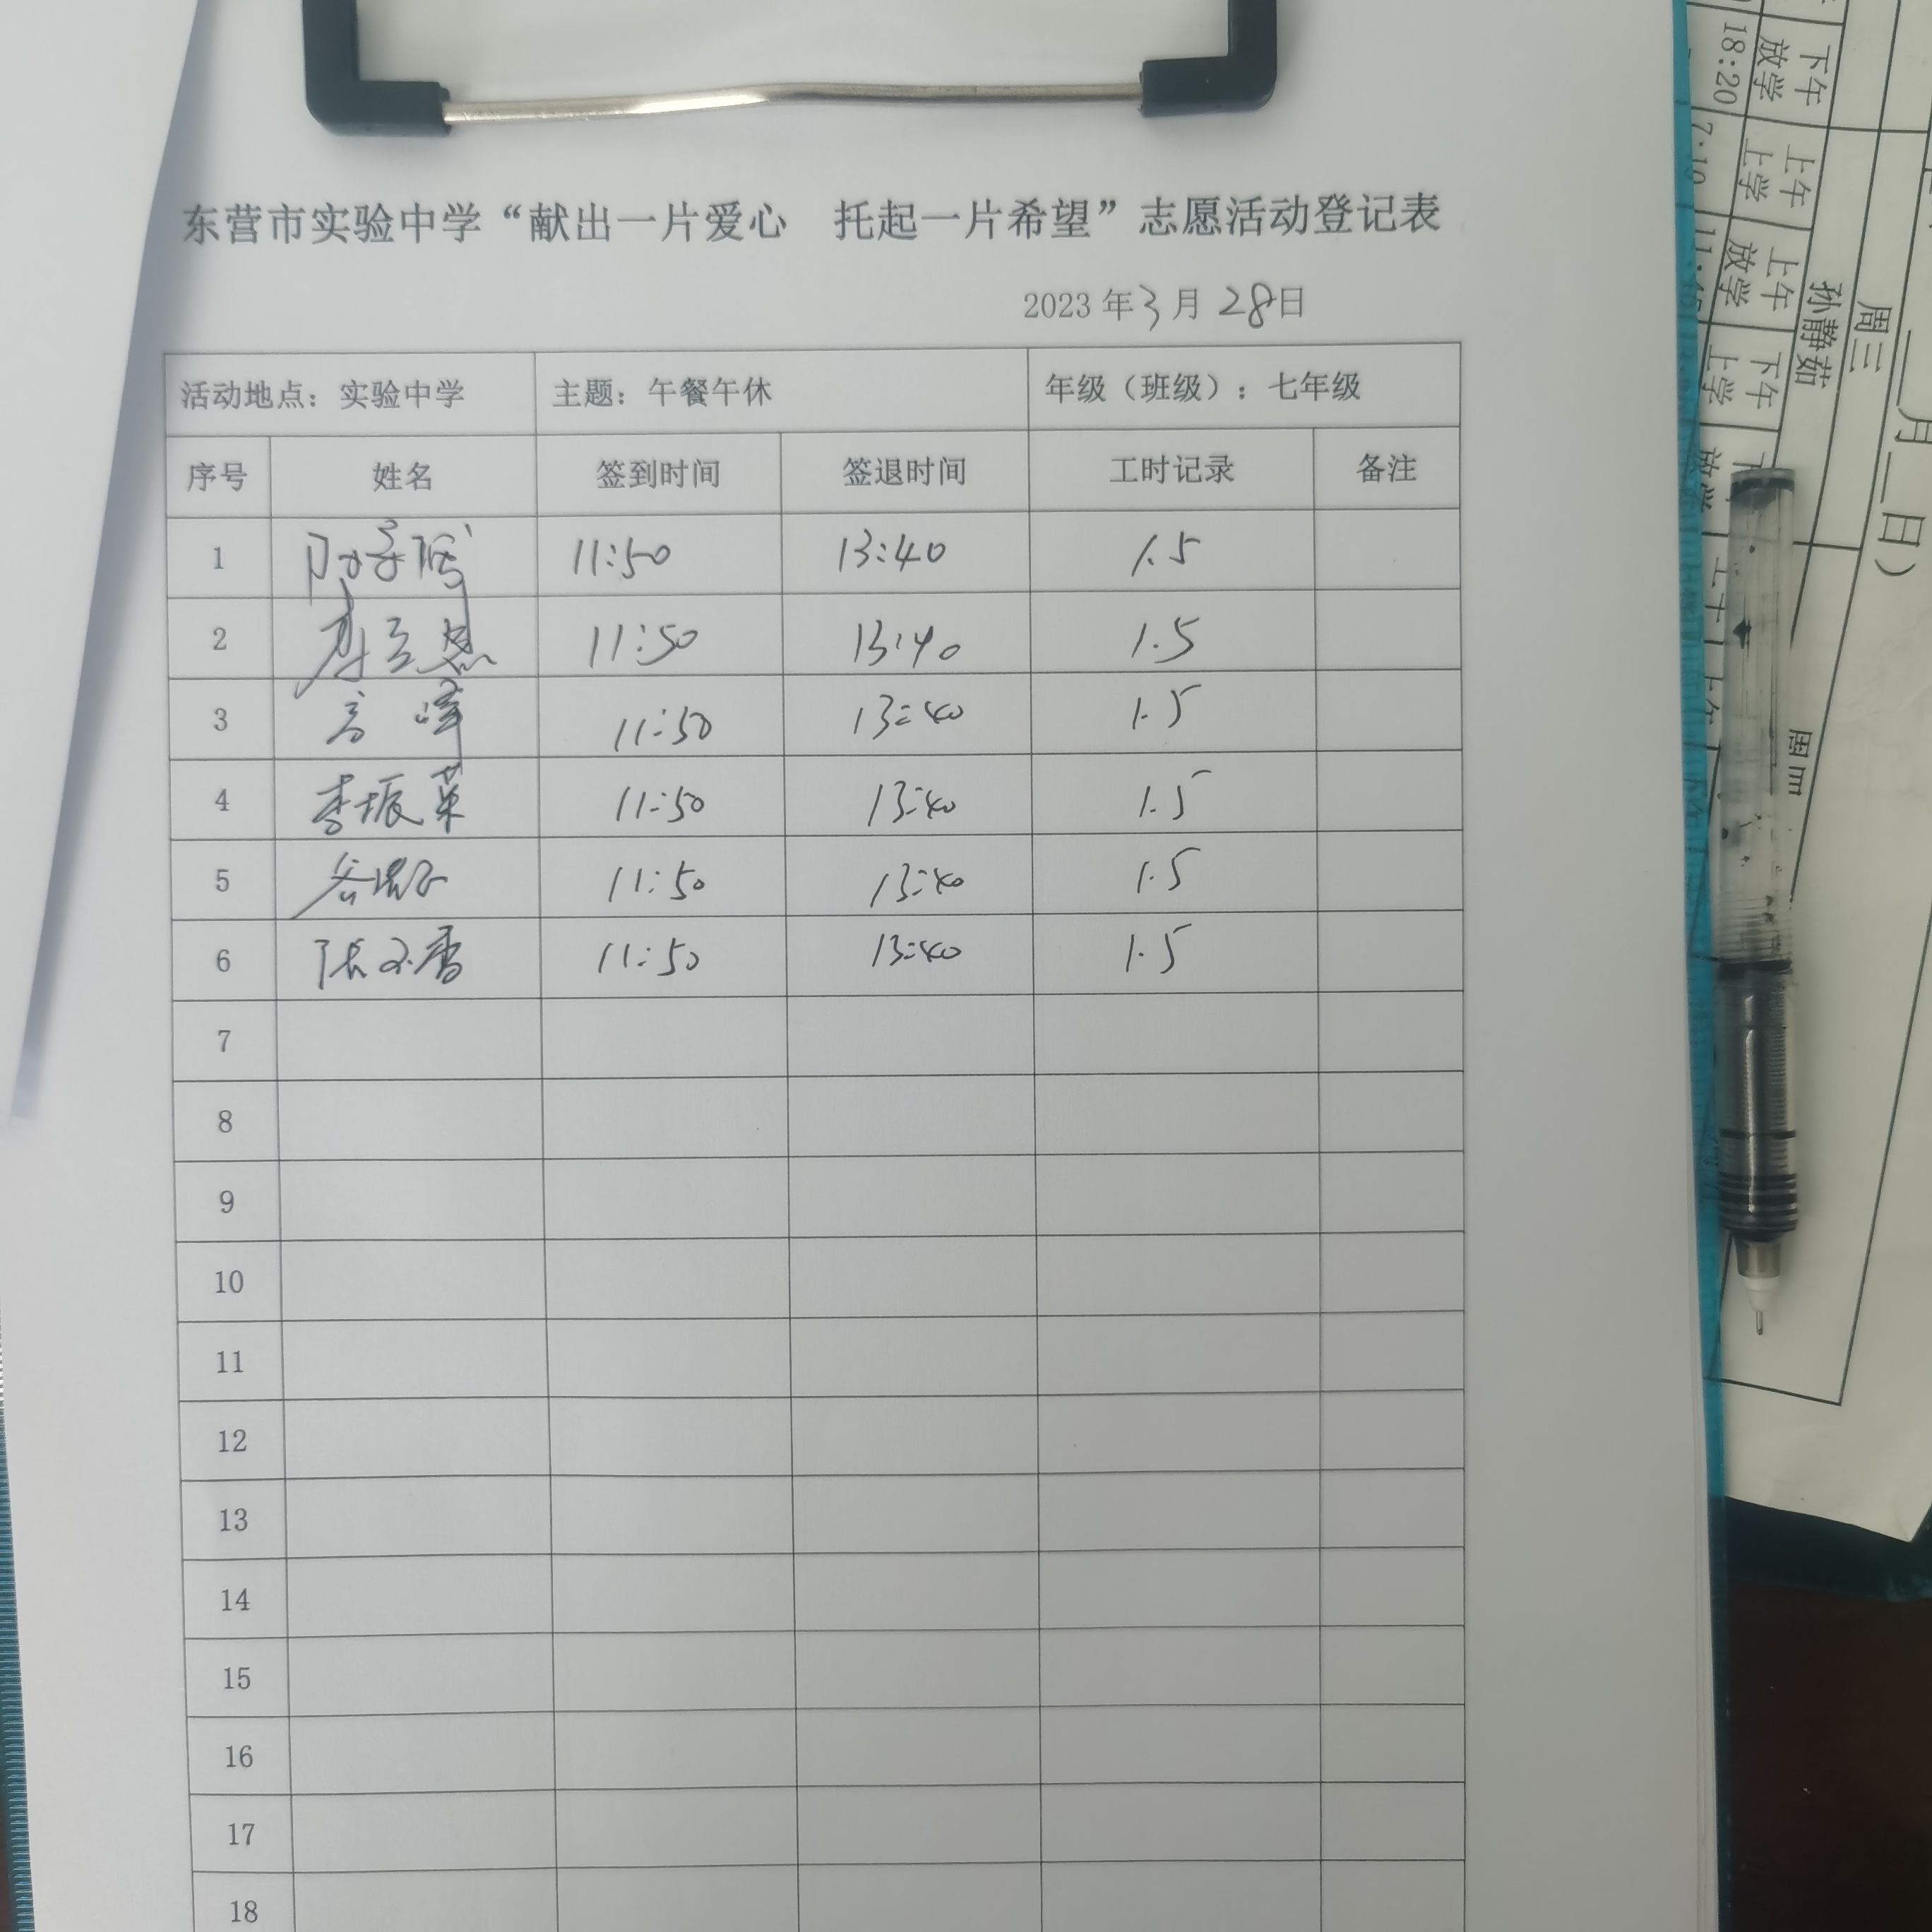 东营市实验中学“献出一片爱心 托起一片希望”志愿活动登记表
2023年3月28日
活动地点：实验中学 主题：午餐午休 年级（班级）：七年级
序号 姓名 签到时间 签退时间 工时记录 备注
1 11:50 13:40 1.5
2 11:50 13:40 1.5
3 高峰 11:50 13:40 1.5
4 李振菜 11:50 13:40 1.5
5 11:50 13:40 1.5
6 11:50 13:40 1.5
7
8
9
10
11
12
13
14
15
16
17
18
下午放学
18:20
上午上学
7:10
上午放学
下午上学
孙静茹
周三
月 日）
周四